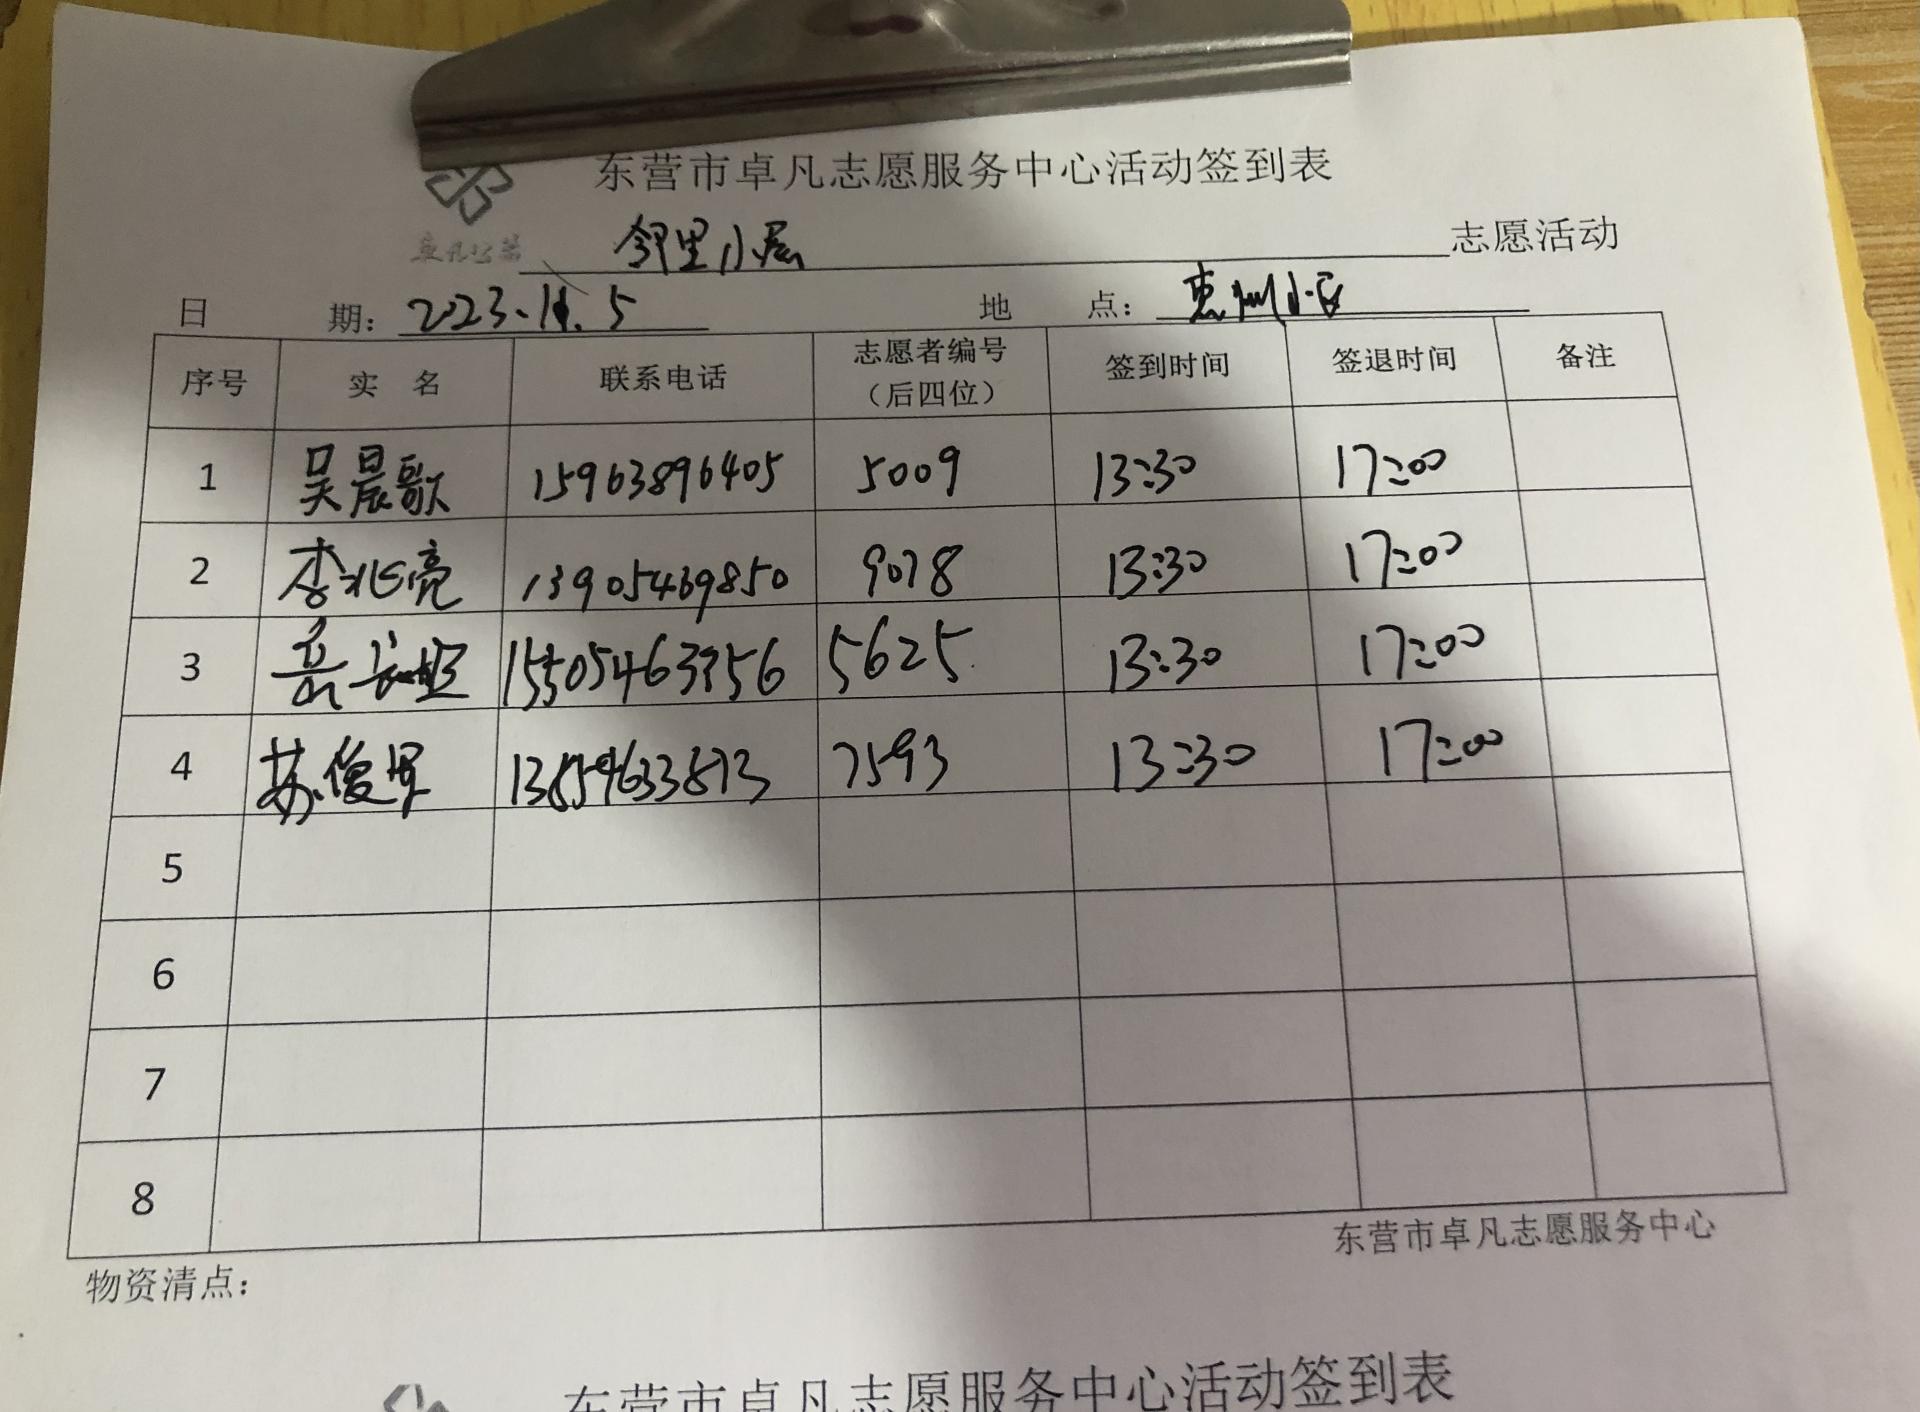 东营市卓凡志愿服务中心活动签到表
卓凡公益 邻里小屋 志愿活动
日 期: 2023.11.5 地 点: 惠州小区
序号 实 名 联系电话 志愿者编号（后四位） 签到时间 签退时间 备注
1 吴晨歌 15963896405 5009 13:30 17:00
2 李兆亮 13905469850 9078 13:30 17:00
3 5625 13:30 17:00
4 苏俊军 13854633873 7593 13:30 17:00
5
6
7
8
东营市卓凡志愿服务中心
物资清点:
东营市卓凡志愿服务中心活动签到表